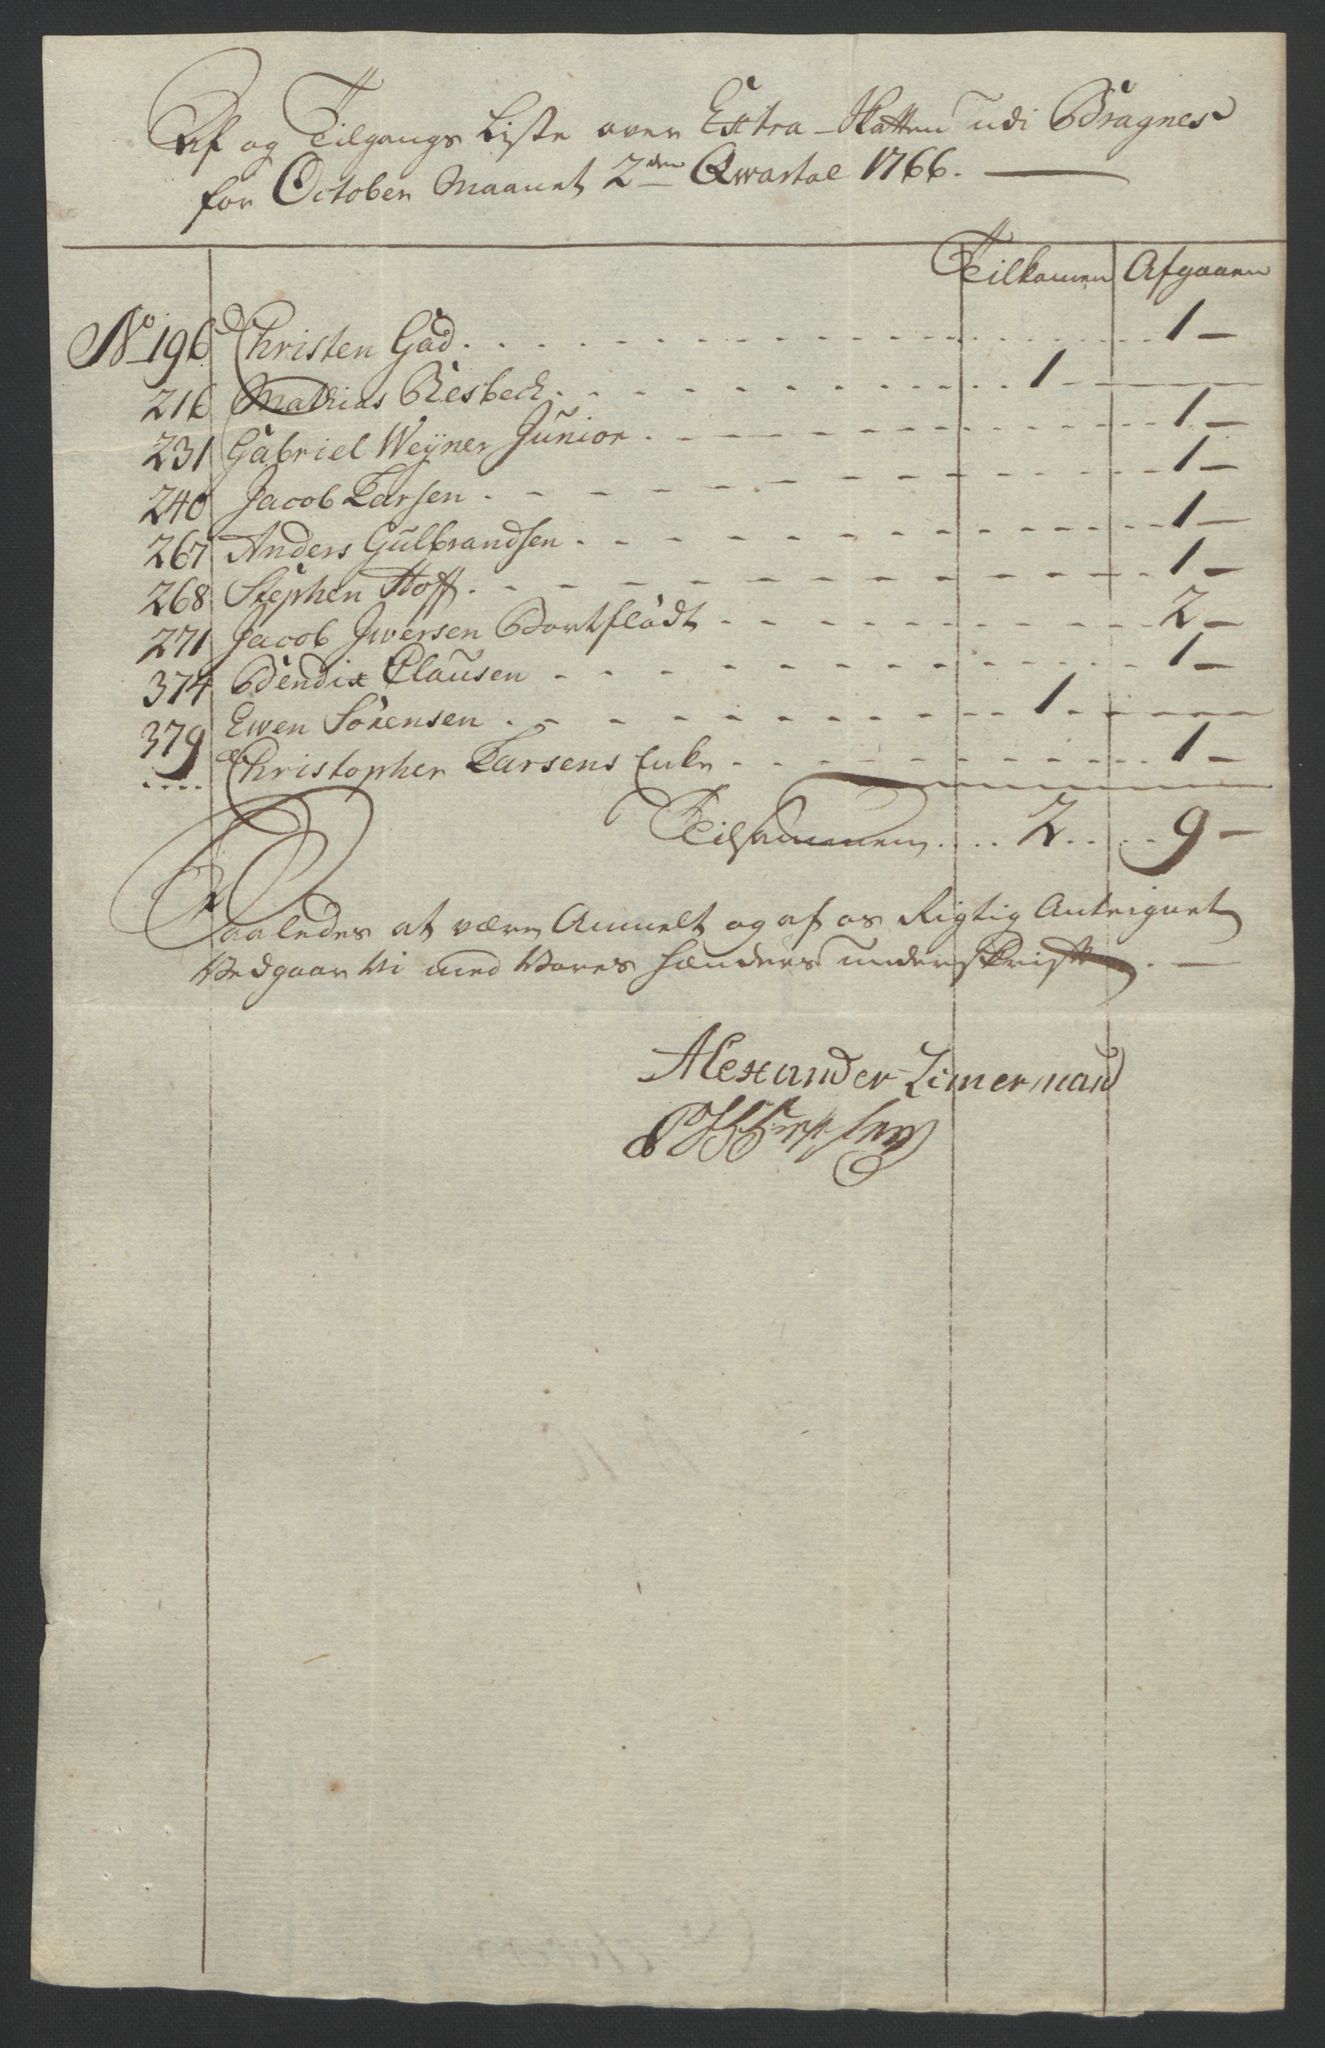 Af og Tilgangs Liste over Extra-Skatten udi Bragnes
for October Maanet 2den Qwartal 1766.
Tilkomen Afgaaen
No 196 Christen Gad 1
216 Mathias Besbech 1
231 Gabriel Weÿner Junior 1
240 Jacob Larsen 1
267 Anders Gulbrandsen 1
268 Stephen Hoff 1
271 Jacob Jwersen Bortflödt 2
374 Bendix Clausen 1
379 Ewen Sörensen 1
.... Christopher Larsens Enke 1
Tilsammen 2 9
Saaledes at være Anmelt og af os Rigtig Anteignet
Vedgaar Vi med Vores Hænders underskrift
Alexander Zimerman